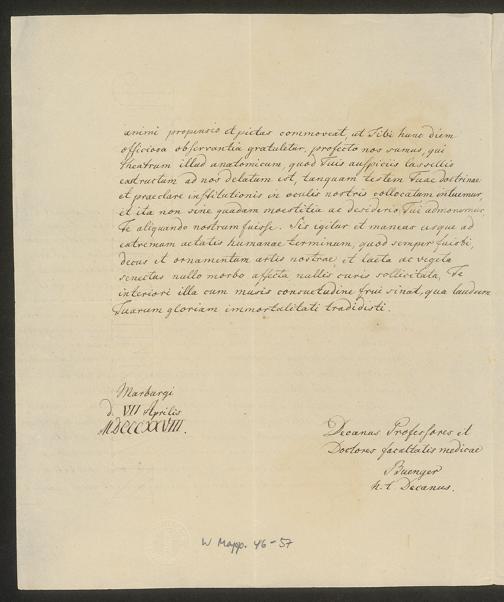 animi propensio et pietas commoveat, ut Tibi hunc diem
officiosa observantia gratuletur, profecto nos sumus, qui
theatrum illud anatomicum, quod Tuis auspiciis Cassellis
exstructum ad nos delatum est, tanquam testem Tuae doctrinae
et praeclare institutionis in oculis nostris collocatam intuemur,
et ita non sine quadam moestitia ac desiderio Tui admonemur,
Te aliquando nostrum fuisse. Sis igitur et maneas usque ad
extremum aetatis humanae terminum, quod semper fuisti,
decus et ornamentum artis nostrae et laeta ac vegeta
senectus nullo morbo affecta nullis curis sollicitata, Te
interiori illa cum musis consuetudine frui sinat, qua laudum
Tuarum gloriam immortalitati tradidisti.
Marburgi
d. VII Aprilis
MDCCCXXVIII.
Decanus Professores et
Doctores facultatis medicae
Buenger
h. t. Decanus.
W Mapp. 46-57